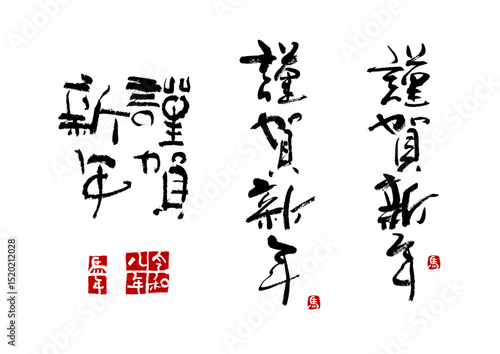 謹賀
新年
謹賀新年
謹賀新年
馬年
令和
八年
馬
馬
Adobe Stock | #1520212028